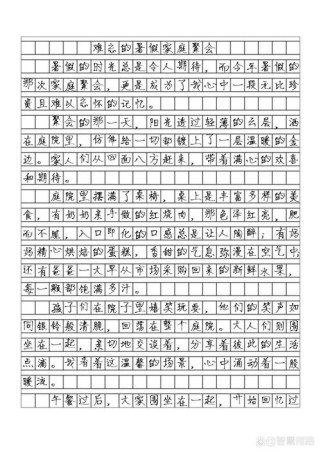 难忘的暑假家庭聚会
暑假的时光总是令人期待,而今年暑假的
那次家庭聚会,更是成为了我心中一段无比珍
贵且难以忘怀的记忆。
聚会的那一天,阳光透过轻薄的云层,洒
在庭院里,仿佛给一切都镀上了一层温暖的金
边。家人们从四面八方赶来,带着满心的欢喜
和期待。
庭院里摆满了桌椅,桌上是丰富多样的美
食,有奶奶亲手做的红烧肉,那色泽红亮,肥
而不腻,入口即化的口感总是让人陶醉;有妈
妈精心烘焙的蛋糕,香甜的气息弥漫在空气中;
还有爸爸一大早从市场采购回来的新鲜水果,
每一颗都饱满多汁。
孩子们在院子里嬉笑玩耍,他们的笑声如
同银铃般清脆,回荡在整个庭院。大人们则围
坐在一起,亲切地交谈着,分享着彼此的生活
点滴。我看着这温馨的场景,心中涌动着一股
暖流。
午餐过后,大家围坐在一起,开始回忆过